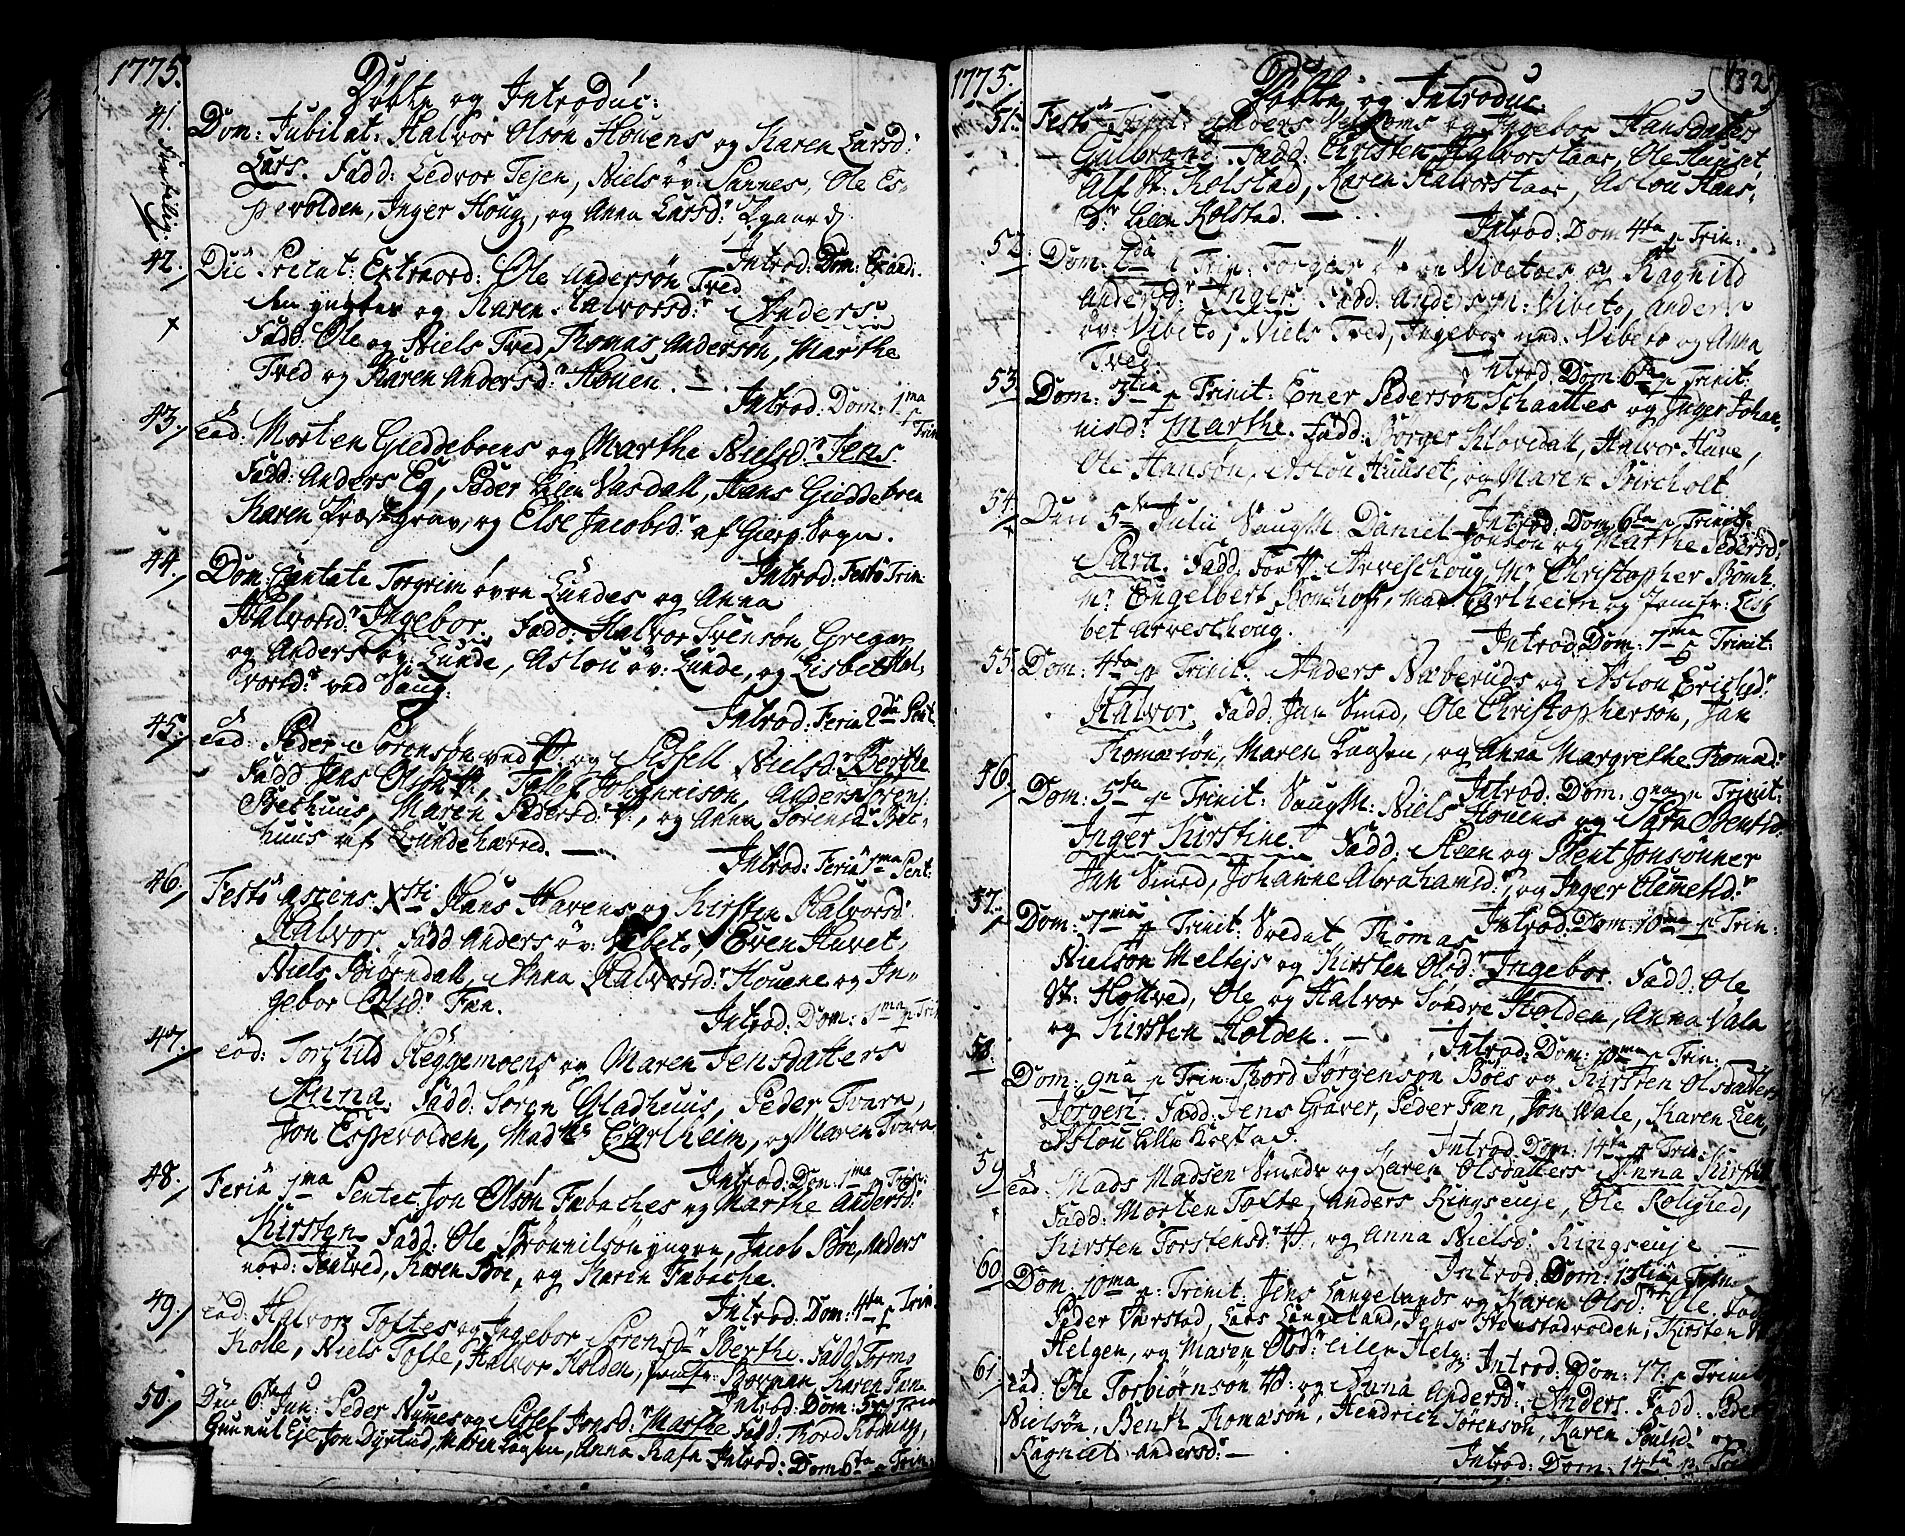 1775.
Döbte og Introduc:
41. Dom: Jubilat: Halvor Olsön Houens og Karen Larsd:
Lars. Fadd: Ledvor Tejen, Niels öv: Sannes, Ole Es-
pevolden, Inger Houg, og Anna Larsd:
Introd: Dom: Exaudi.
42. Die Precat: Extraord: Ole Andersön Tved
den yngres og Karen Halvorsd: Anders
Fadd: Ole og Niels Tved, Thomas Andersön, Marthe
Tved og Karen Andersd: Houen.
Introd: Dom: 1ma p Trin
43. ead: Morten Gieddeboens og Marthe Nielsd: Jens
Fadd: Anders Eg, Peder Vasdall, Hans Gieddeboen
Karen Præstgrav, og Else Jacobsd: af Gierp. Sogn.
Introd: Festo Trin:
44. Dom: Cantate Torgrim övre Lundes og Anna
Halvorsd: Ingebor. Fadd: Halvor Svensön, Gregar
og Anders öv: Lunde, Aslou öv: Lunde, og Lisbet Hal-
vorsd: ved Saug:
Introd: Feria 2da Pent.
45. ead: Peder Sörensön ved W: og Sissell Nielsd: Berthe
Fadd: Jens Olsön W, Tollef Johannison, Anders Sörens:
Brechuus, Maren Pedersd: W, og Anna Sörensd: Bec-
huus af Lundeherred.
Introd: Feria 1ma Pent:
46. Festo Ascens Xsti Hans Havens og Kirsten Halvorsd:
Halvor. Fadd: Anders öv: Vibeto, Even Huvet,
Niels Biörndall, Anna Halvorsd: Houene og In-
gebor Olsd: Fæn.
Introd: Dom: 1ma p Trin
47. ead: Torchild Heggemoens og Maren Jensdatters
Anna. Fadd: Sören Gladhuus, Peder Tvara,
Jon Espevolden, Mad: Carlheim, og Maren Tvara
Introd: Dom: 1ma p Trin:
48. Feria 1ma Pentec: Jon Olsön Fæbaches og Marthe Andersd:
Kirsten. Fadd: Ole Brönnilsön yngre, Jacob Böe, Anders
nord: Holtved, Karen Böe, og Karen Fæbache.
Introd: Dom: 4ta p Trin.
49. ead: Halvor Toftes og Ingebor Sörensd: Berthe. Fadd: Tormo
Kolle, Niels Tofte, Halvor Holden, Jomfr: Borman, Karen Fæn
Introd: Dom: 5ta p Trin
50. Den 6te Jun: Peder Numes og Sissel Jonsd: Marthe Fadd: Thord Römning,
Gunnul Eje, Jon Dyrlud, Maren Lassen, Anna Rafn
Introd: Dom: 6ta p Trin:
1775.
132
Döbte og Introduc:
51. Festo Trinit: og Ingebor Hansdatter
Gulbrand. Fadd: Christen Halvorstaar, Ole Huuset
Alf V: Kolstad, Karen Halvorstaar, Aslou Hans-
Dr: Lilen Kolstad.
Introd: Dom 4ta p Trin:
52. Dom: 2da p Trin: Torger Vibetoes og Ragnild
Andersd: Inger. Fadd: Anders n: Vibeto, Anders
öv: Vibeto, Niels Tved, Ingebor ned: Vibeto og Anna
Tved.
Introd: Dom: 6ta p Trinit:
53. Dom: 3tia p Trinit: Ener Pedersön Schaattes og Inger Johan-
nisd: Marthe. Fadd: Börger Klovedall, Halvor Huve,
Ole Hansön, Aslou Huuset, og Maren Bircholt
Introd: Dom: 6ta p Trinit:
54. Den 5te Julii Saug M: Daniel Jonsön og Marthe Pedersd:
Sara. Fadd: For W: Arveschoug, Mr Christopher Bomh:
Mr Engelbert Bomhoff, Mad: Carlheim og Jomfr: Lisa-
bet Arveschoug.
Introd: Dom: 7ma p Trinit:
55. Dom: 4ta p Trinit: Anders Næberuds og Aslou Erichsd:
Halvor. Fadd: Jan Smed, Ole Christopherson, Jan
Thomæsön, Maren Lassen, og Anna Margrethe Thomæd:
Introd: Dom: 9na p Trinit:
56. Dom: 5ta p Trinit: Saug M: Niels Houens og Sara Bentsd:
Inger Kirstine. Fadd: Steen og Bent Jonsönner
Jan Smed, Johanne Abrahamsd:, og Inger Clemetsd:
Introd: Dom: 10ma p Trin:
57. Dom: 7ma p Trinit: Svedat Thomas
Nielsön Meltejs og Kirsten Olsd: Ingebor. Fadd: Ole
V: Holtved, Ole og Halvor Söndre Holden, Anna Vala
og Kirsten Holden.
Introd: Dom: 10ma p Trin:
58. Dom: 9na p Trin: Thord Jörgensön Böes og Kirsten Olsdatters
Jörgen. Fadd: Jens Graver, Peder Fæn, Jon Vale, Karen Lien,
Aslou Lille Kolstad.
Introd: Dom: 14ta p Trin:
59. ead: Mads Madsen Smeds og Karen Olsdatters Anna Kirstine
Fadd: Morten Tofte, Anders Ringseuje, Ole Rolighed,
Kirsten Torstensd: W, og Anna Nielsd: Ringseuje
Introd: Dom: 13tia p Trin:
60. Dom 10ma p: Trinit: Jens Langelands og Karen Olsd: Ole. Fadd
Peder Værstad, Lars Langeland, Jens Honstadvolden, Kirsten V:
Helgen, og Maren Olsd: Lilen Helg:
Introd: Dom: 17: p Trinit:
61. ead: Ole Torbiörnsön W: og Anna Andersd: Anders. Fadd: Peder
Nielsön, Benth Thomæsön, Hendrich Sörensön, Karen Poulsd: og
Ragnild Andersd:
Introd: Dom: 14ta p. Trin